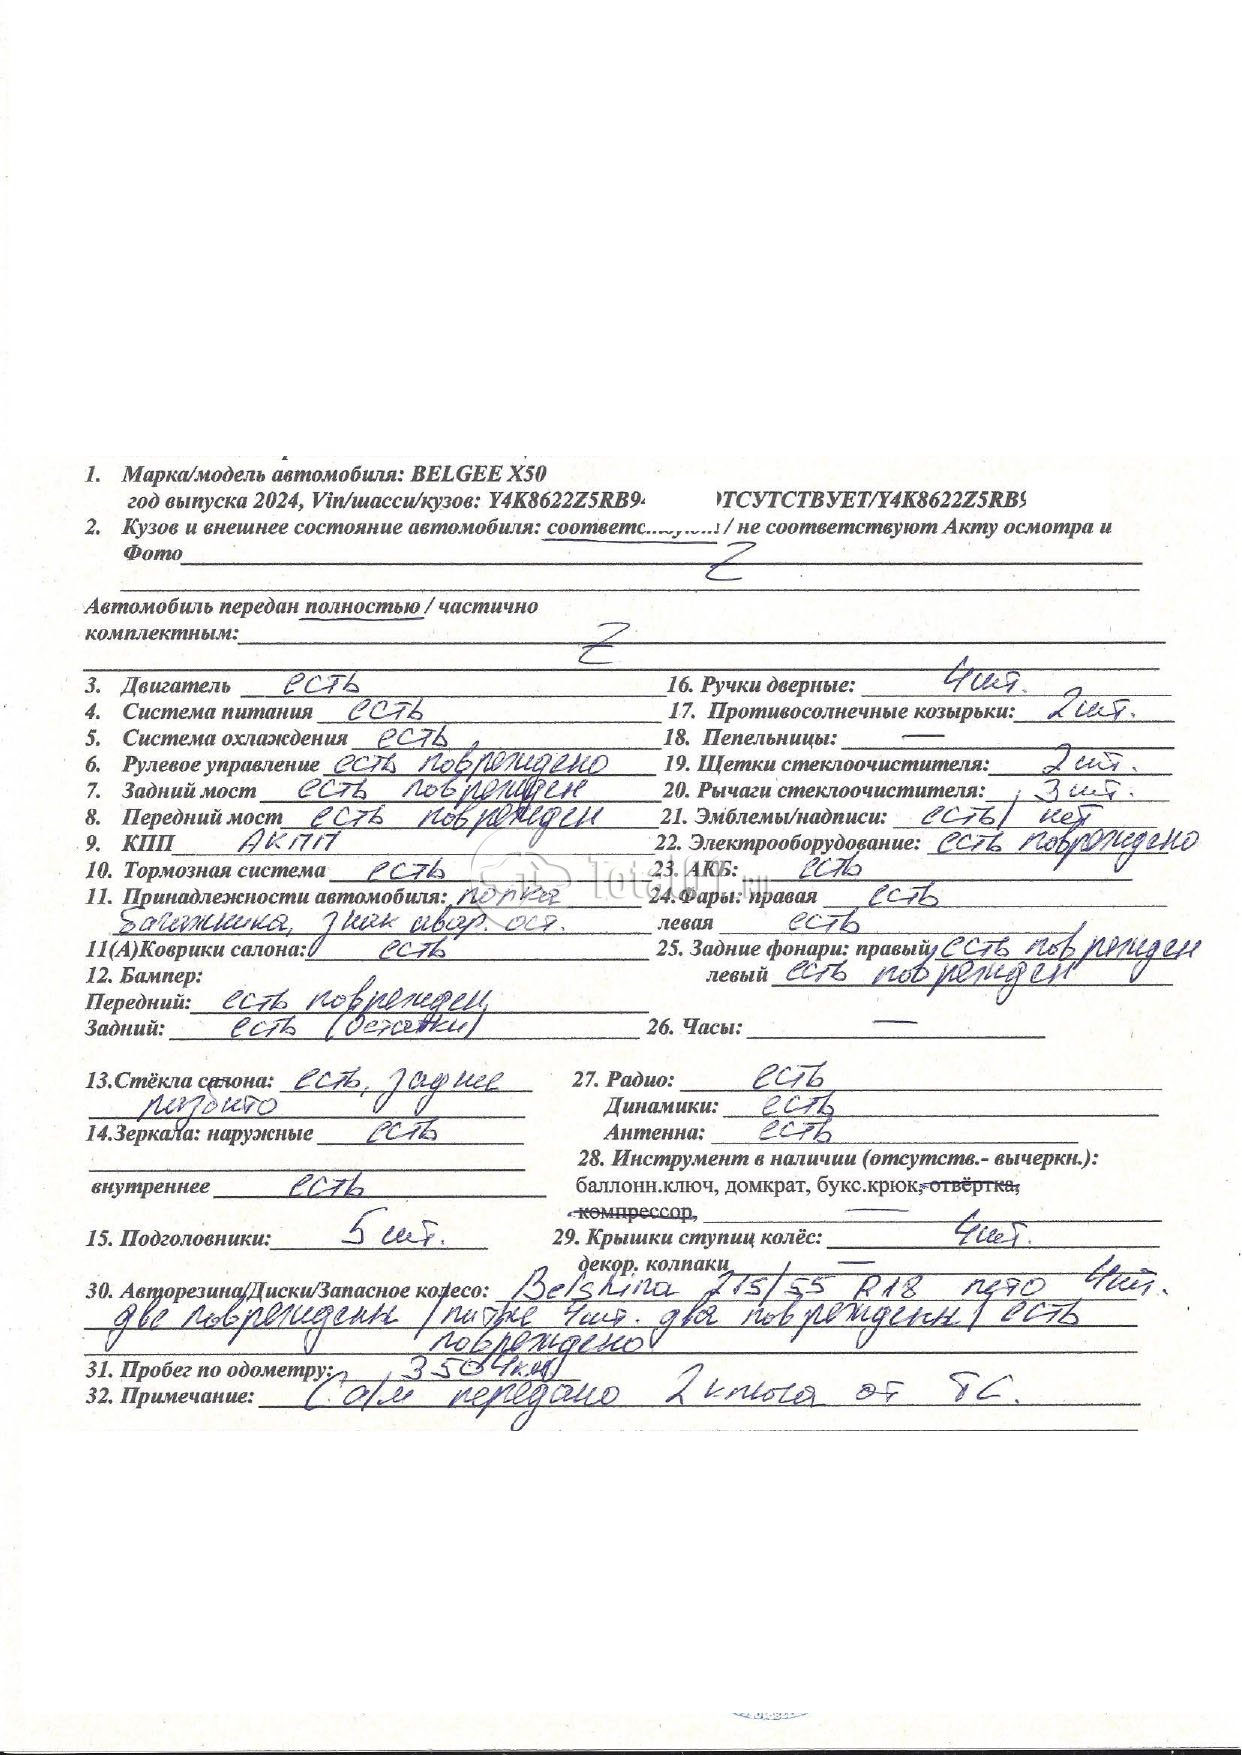 1. Марка/модель автомобиля: BELGEE X50
год выпуска 2024, Vin/шасси/кузов: Y4K8622Z5RB9 ОТСУТСТВУЕТ/Y4K8622Z5RB9
2. Кузов и внешнее состояние автомобиля: соответс / не соответствуют Акту осмотра и
Фото Z
Автомобиль передан полностью / частично
комплектным: Z
3. Двигатель есть
4. Система питания есть
5. Система охлаждения есть
6. Рулевое управление есть повреждено
7. Задний мост есть поврежден
8. Передний мост есть поврежден
9. КПП АКПП
10. Тормозная система есть
11. Принадлежности автомобиля: полка
багажника, знак авар. ост.
11(А)Коврики салона: есть
12. Бампер:
Передний: есть поврежден
Задний: есть (остатки)
13.Стёкла салона: есть, заднее
разбито
14.Зеркала: наружные есть
внутреннее есть
15. Подголовники: 5 шт.
16. Ручки дверные: 4шт.
17. Противосолнечные козырьки: 2шт.
18. Пепельницы: —
19. Щетки стеклоочистителя: 2шт.
20. Рычаги стеклоочистителя: 3шт.
21. Эмблемы/надписи: есть/ нет
22. Электрооборудование: есть повреждено
23. АКБ: есть
24.Фары: правая есть
левая есть
25. Задние фонари: правый есть поврежден
левый есть поврежден
26. Часы: —
27. Радио: есть
Динамики: есть
Антенна: есть
28. Инструмент в наличии (отсутств.- вычеркн.):
баллонн.ключ, домкрат, букс.крюк, отвёртка,
компрессор, —
29. Крышки ступиц колёс: 4шт.
декор. колпаки —
30. Авторезина/Диски/Запасное колесо: Belshina 215/55 R18 лето 4шт.
две повреждены / литые 4шт. два повреждены / есть
повреждено
31. Пробег по одометру: 3504км
32. Примечание: С а/м передано 2 ключа от ТС.
Total01.ru